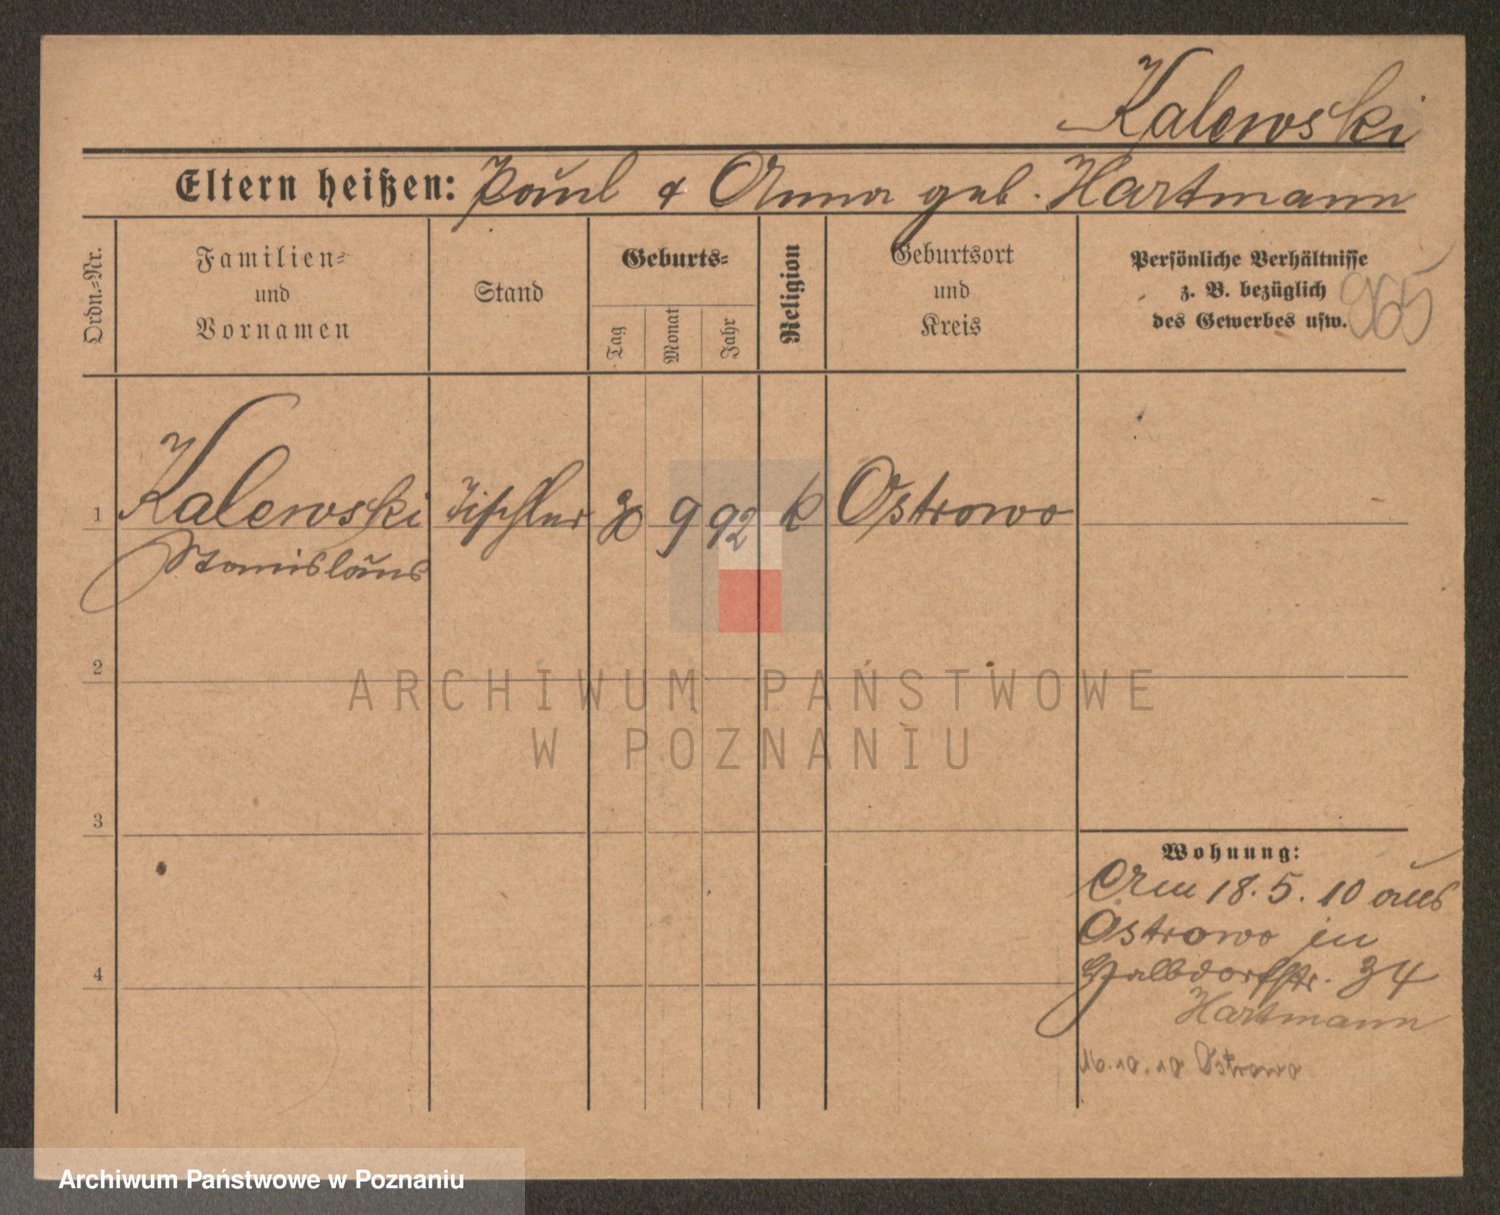 Kalewski
Eltern heißen: Paul & Anna geb. Hartmann
Ordn.-Nr.
Familien-
und
Vornamen
Stand
Geburts-
Tag
Monat
Jahr
Religion
Geburtsort
und
Kreis
Persönliche Verhältnisse
z. B. bezüglich
des Gewerbes usw.
965
1 Kalewski Tischler 9 92 k Ostrowo
Stanislaus
2
ARCHIWUM PAŃSTWOWE
W POZNANIU
3
Wohnung:
Am 18.5.10 aus
Ostrowo in
Halbdorfstr. 34
4
Hartmann
16.10.10 Ostrowo
Archiwum Państwowe w Poznaniu